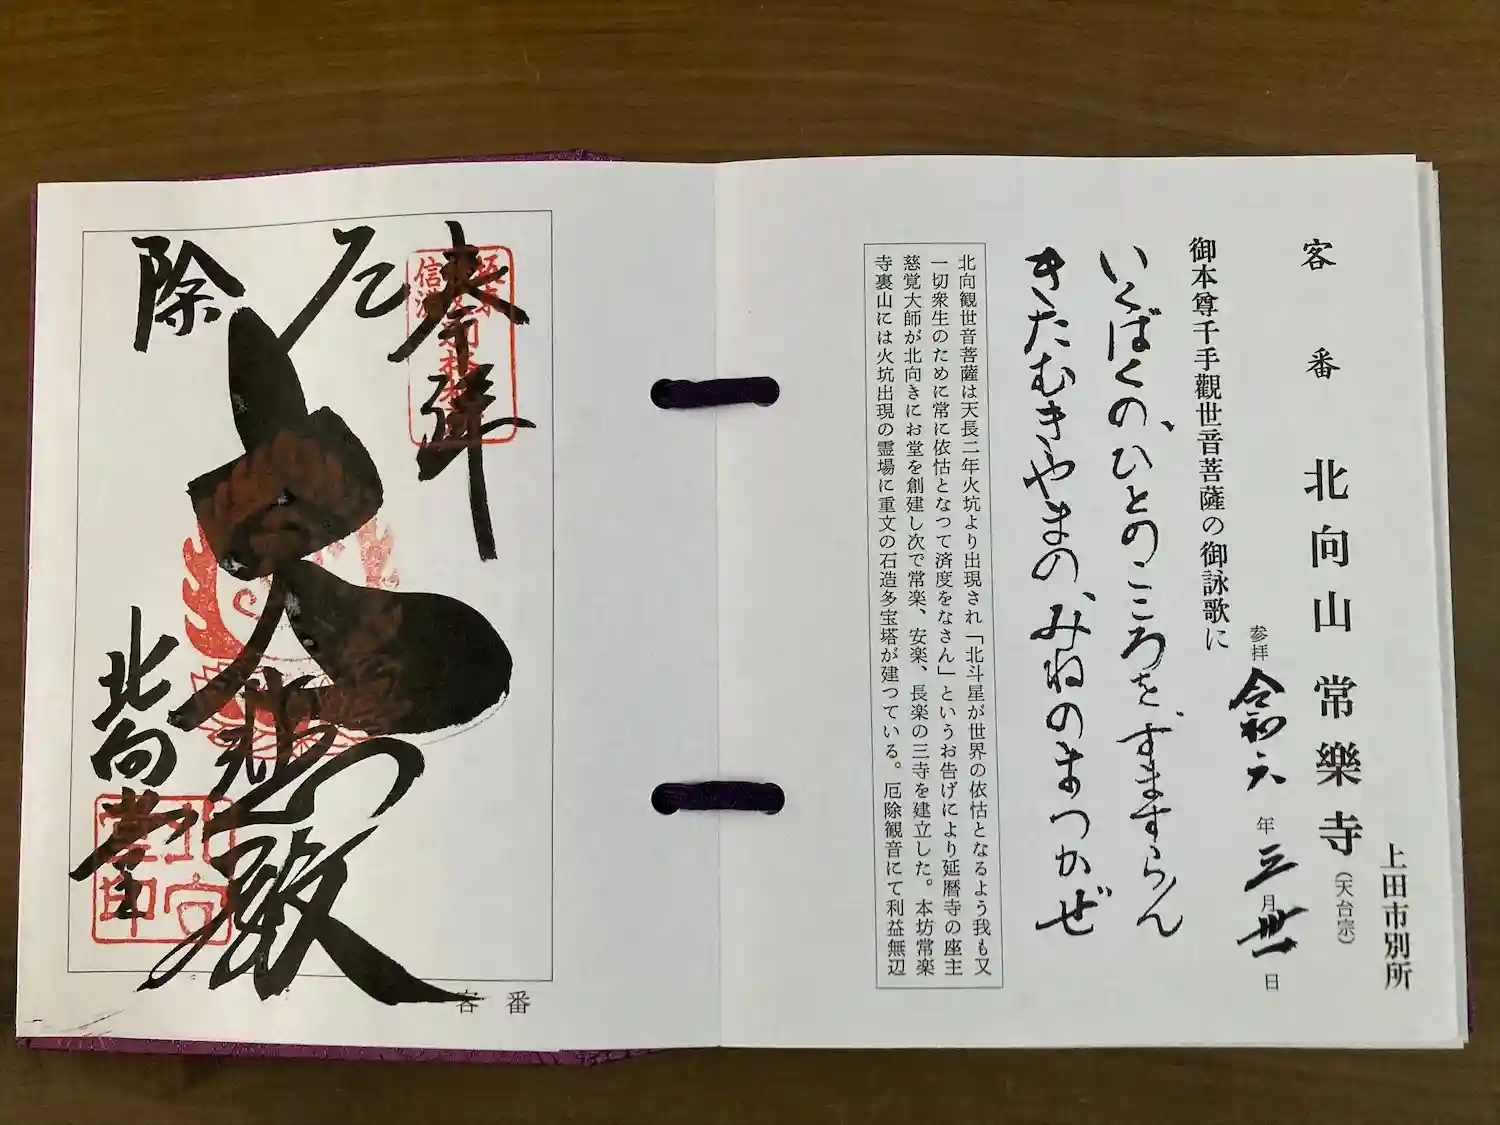 上田市別所
客番 北向山常樂寺（天台宗）
参拝 令和六年三月卅一日
御本尊千手觀世音菩薩の御詠歌に
いくばくの、ひとのこころを、すますらん
きたむきやまの、みねのまつかぜ
北向観世音菩薩は天長二年火坑より出現され「北斗星が世界の依怙となるよう我も又
一切衆生のために常に依怙となつて済度をなさん」というお告げにより延暦寺の座主
慈覚大師が北向きにお堂を創建し次で常楽、安楽、長楽の三寺を建立した。本坊常楽
寺裏山には火坑出現の霊場に重文の石造多宝塔が建つている。厄除観音にて利益無辺
奉拝
厄除
大悲殿
北向堂
客番